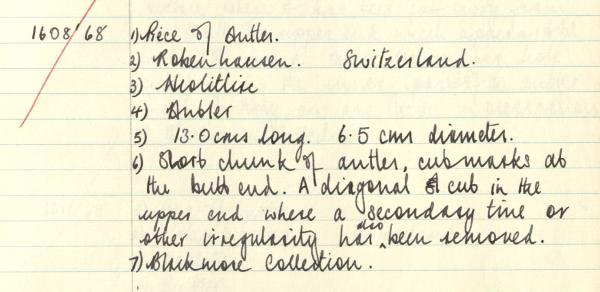 1608/68 1) Piece of Antler.
2) Robenhausen. Switzerland.
3) Neolithic
4) Antler
5) 13.0cms long. 6.5 cms diameter.
6) Short chunk of antler, cut marks at
the butt end. A diagonal cut in the
upper end where a secondary tine or
other irregularity has also been removed.
7) Blackmore Collection.